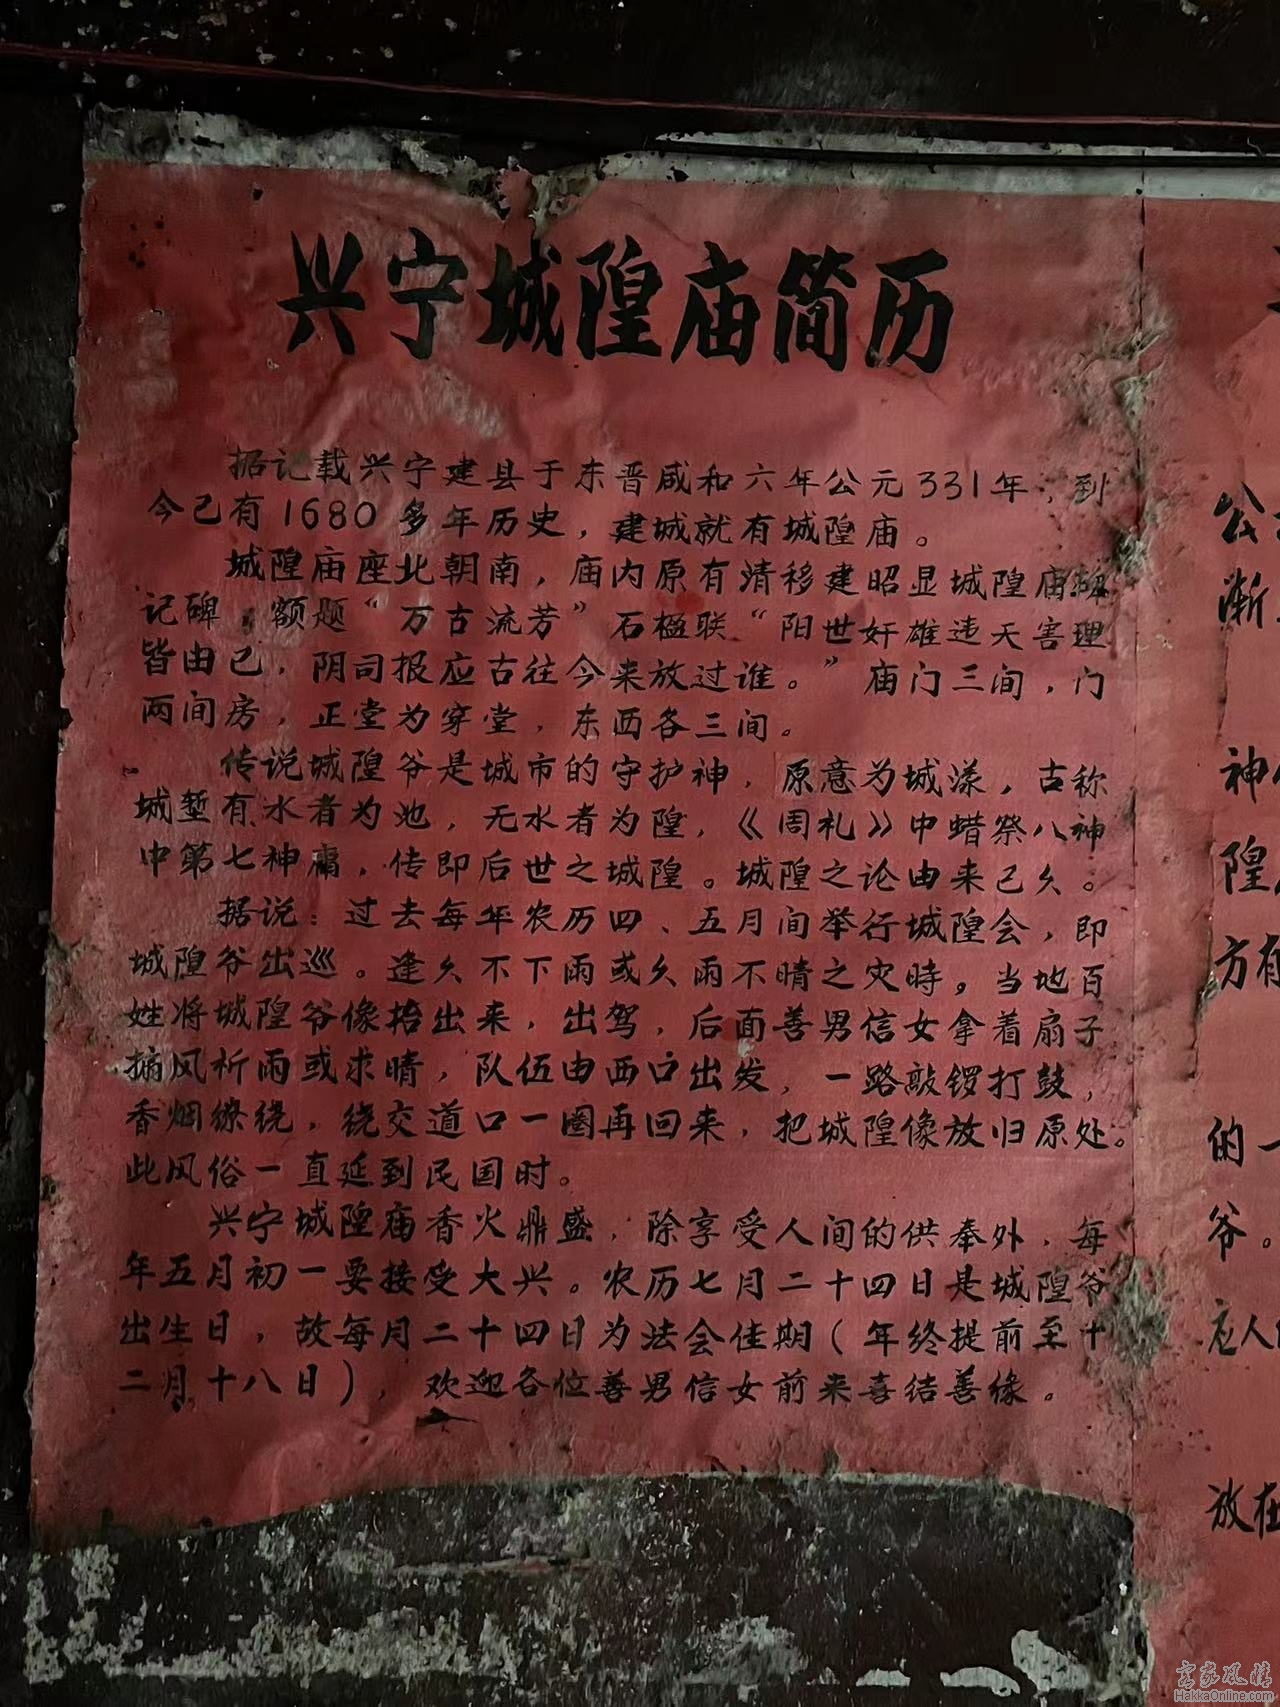 兴宁城隍庙简历
据记载兴宁建县于东晋咸和六年公元331年，到
今已有1680多年历史，建城就有城隍庙。
城隍庙座北朝南，庙内原有清移建昭显城隍庙碑
记碑，额题“万古流芳”石楹联“阳世奸雄违天害理
皆由己，阴司报应古往今来放过谁。”庙门三间，门
两间房，正堂为穿堂，东西各三间。
传说城隍爷是城市的守护神，原意为城漾，古称
城堑有水者为池，无水者为隍，《周礼》中蜡祭八神
中第七神庸，传即后世之城隍。城隍之论由来已久。
据说：过去每年农历四、五月间举行城隍会，即
城隍爷出巡。逢久不下雨或久雨不晴之灾時。当地百
姓将城隍爷像抬出来，出驾，后面善男信女拿着扇子
搧风祈雨或求晴，队伍由西口出发，一路敲锣打鼓，
香烟缭绕，绕交道口一圈再回来，把城隍像放归原处。
此风俗一直延到民国时。
兴宁城隍庙香火鼎盛，除享受人间的供奉外，每
年五月初一要接受大兴。农历七月二十四日是城隍爷
出生日，故每月二十四日为法会佳期（年终提前至十
二月十八日），欢迎各位善男信女前来喜结善缘。
公
渐
神
隍
方有
的一
爷。
应人
放在
客家风情
HakkaOnline.com